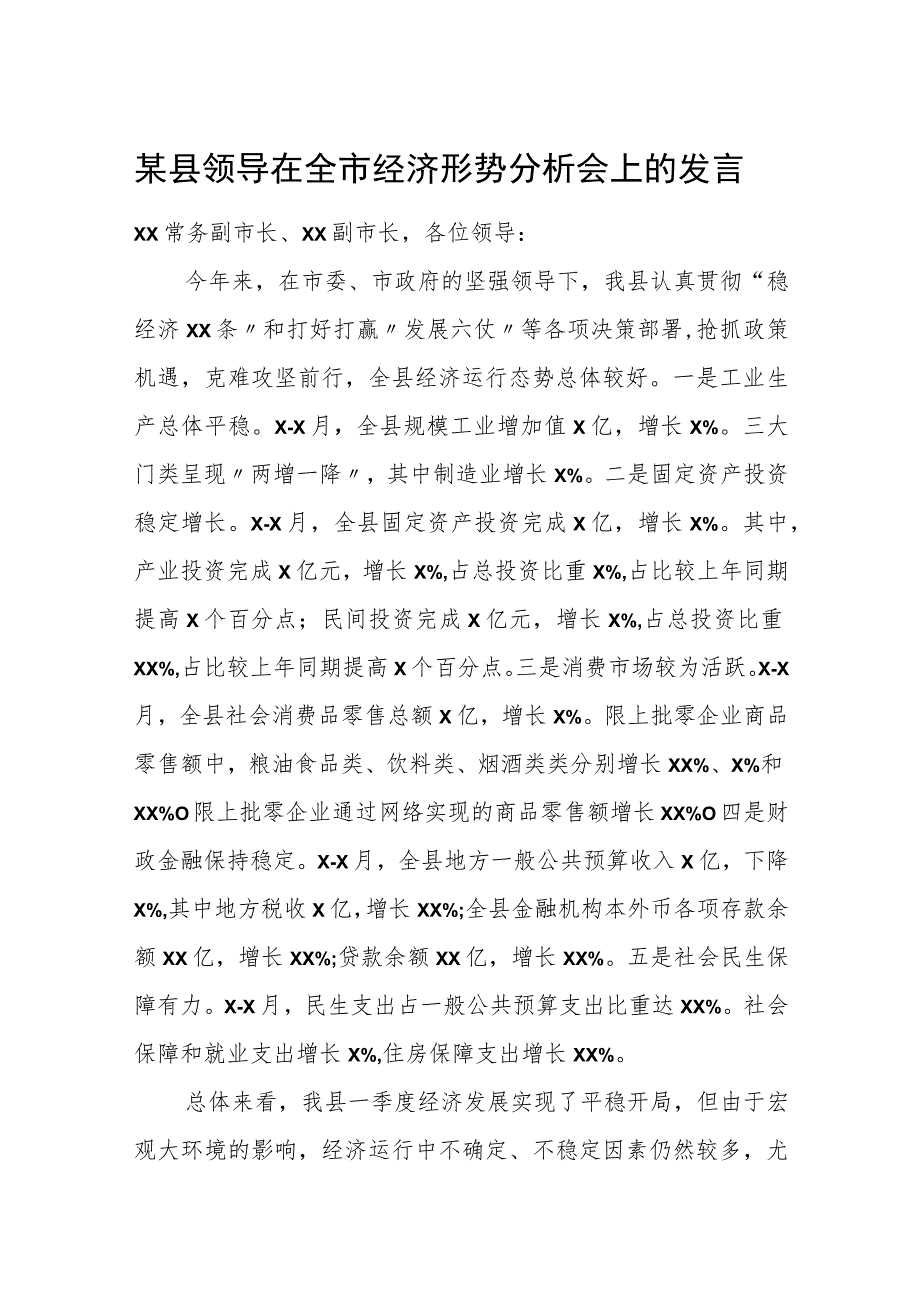 某县领导在全市经济形势分析会上的发言
XX 常务副市长、XX 副市长，各位领导：
今年来，在市委、市政府的坚强领导下，我县认真贯彻“稳
经济 XX 条〃和打好打赢〃发展六仗〃等各项决策部署,抢抓政策
机遇，克难攻坚前行，全县经济运行态势总体较好。一是工业生
产总体平稳。X-X 月，全县规模工业增加值 X 亿，增长 X%。三大
门类呈现〃两增一降〃，其中制造业增长 X%。二是固定资产投资
稳定增长。X-X 月，全县固定资产投资完成 X 亿，增长 X%。其中，
产业投资完成 X 亿元，增长 X%,占总投资比重 X%,占比较上年同期
提高 X 个百分点；民间投资完成 X 亿元，增长 X%,占总投资比重
XX%,占比较上年同期提高 X 个百分点。三是消费市场较为活跃。X-X
月，全县社会消费品零售总额 X 亿，增长 X%。限上批零企业商品
零售额中，粮油食品类、饮料类、烟酒类类分别增长 XX%、X%和
XX%O 限上批零企业通过网络实现的商品零售额增长 XX%O 四是财
政金融保持稳定。X-X 月，全县地方一般公共预算收入 X 亿，下降
X%,其中地方税收 X 亿，增长 XX%;全县金融机构本外币各项存款余
额 XX 亿，增长 XX%;贷款余额 XX 亿，增长 XX%。五是社会民生保
障有力。X-X 月，民生支出占一般公共预算支出比重达 XX%。社会
保障和就业支出增长 X%,住房保障支出增长 XX%。
总体来看，我县一季度经济发展实现了平稳开局，但由于宏
观大环境的影响，经济运行中不确定、不稳定因素仍然较多，尤